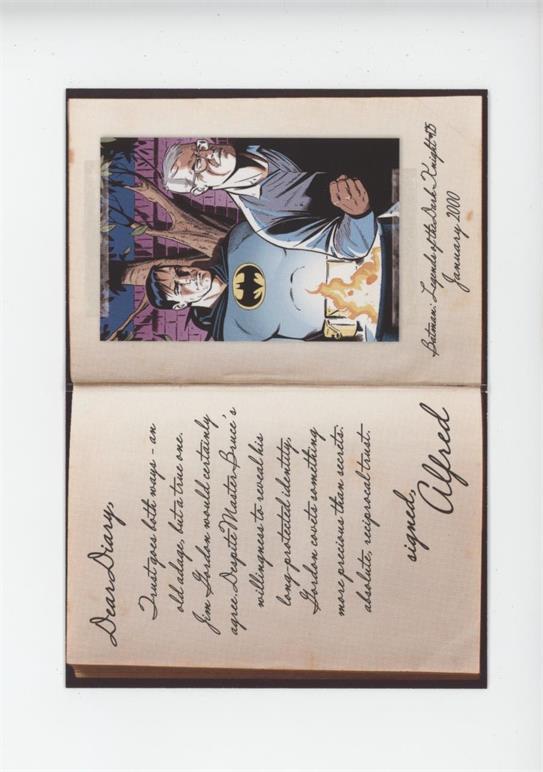 Dear Diary,
Trust goes both ways - an
old adage, but a true one.
Jim Gordon would certainly
agree. Despite Master Bruce's
willingness to reveal his
long-protected identity,
Gordon covets something
more precious than secrets:
absolute, reciprocal trust.
signed,
Alfred
Batman: Legends of the Dark Knight #125
January 2000